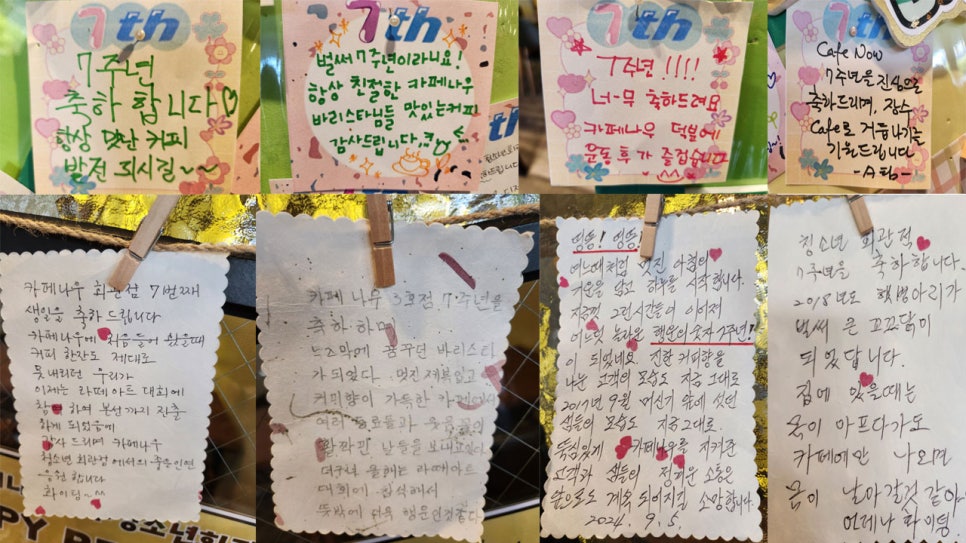 7th
7주년
축하 합니다♡
항상 맛난 커피
발전 되시길~~
7th
벌써 7주년이라니요!
항상 친절한 카페나우
바리스타님들 맛있는커피
감사드립니다.
7th
7주년!!!!
너무 축하드려요
카페나우 덕분에
운동 후가 즐겁습니다
7th
Cafe Now
7주년을 진심으로
축하드리며, 장수
Cafe로 거듭나기를
기원드립니다
-A팀-
카페나우 회관점 7번째
생일을 축하 드립니다
카페나우에 처음들어 왔을때
커피 한잔도 제대로
못내리던 우리가
이제는 라떼아트 대회에
참 하여 본선까지 진출
하게 되었음에
감사드리며 카페나우
청소년 회관점에서의 좋은인연
응원합니다
화이팅~^^
카페 나우 3호점 7주년을
축하하며
느즈막에 꿈꾸던 바리스타
가 되었다. 멋진 제복입고
커피향이 가득한 카페에서
여러 동료들과
날들을 보내고있다
더구나 올해는 라떼아트
대회에 참석해서
뜻밖에 더욱 행운인것같다
영등! 영등!
여느때처럼 멋진 아침의
기운을 담고 하루를 시작합니다.
지금껏 그런시간들이 이어져
어느덧 놀라운 행운의 숫자 7주년!
이 되었네요 진한 커피향을
나눈 고객의 모습도 지금 그대로
2017년 9월 머신기 앞에 섰던
샘들의 모습도 지금그대로.
묵직있게 카페나우를 지켜준
고객과 샘들의 정겨운 소통은
앞으로도 계속 되어지길 소망합니다.
2024. 9. 5.
청소년 회관점
7주년을 축하합니다.
2018년도 햇병아리가
벌써 큰 꼬꼬닭이
되었답니다.
집에 있을때는
몸이 아프다가도
카페에만 나오면
몸이 날아갈것 같아
언제나 화이팅